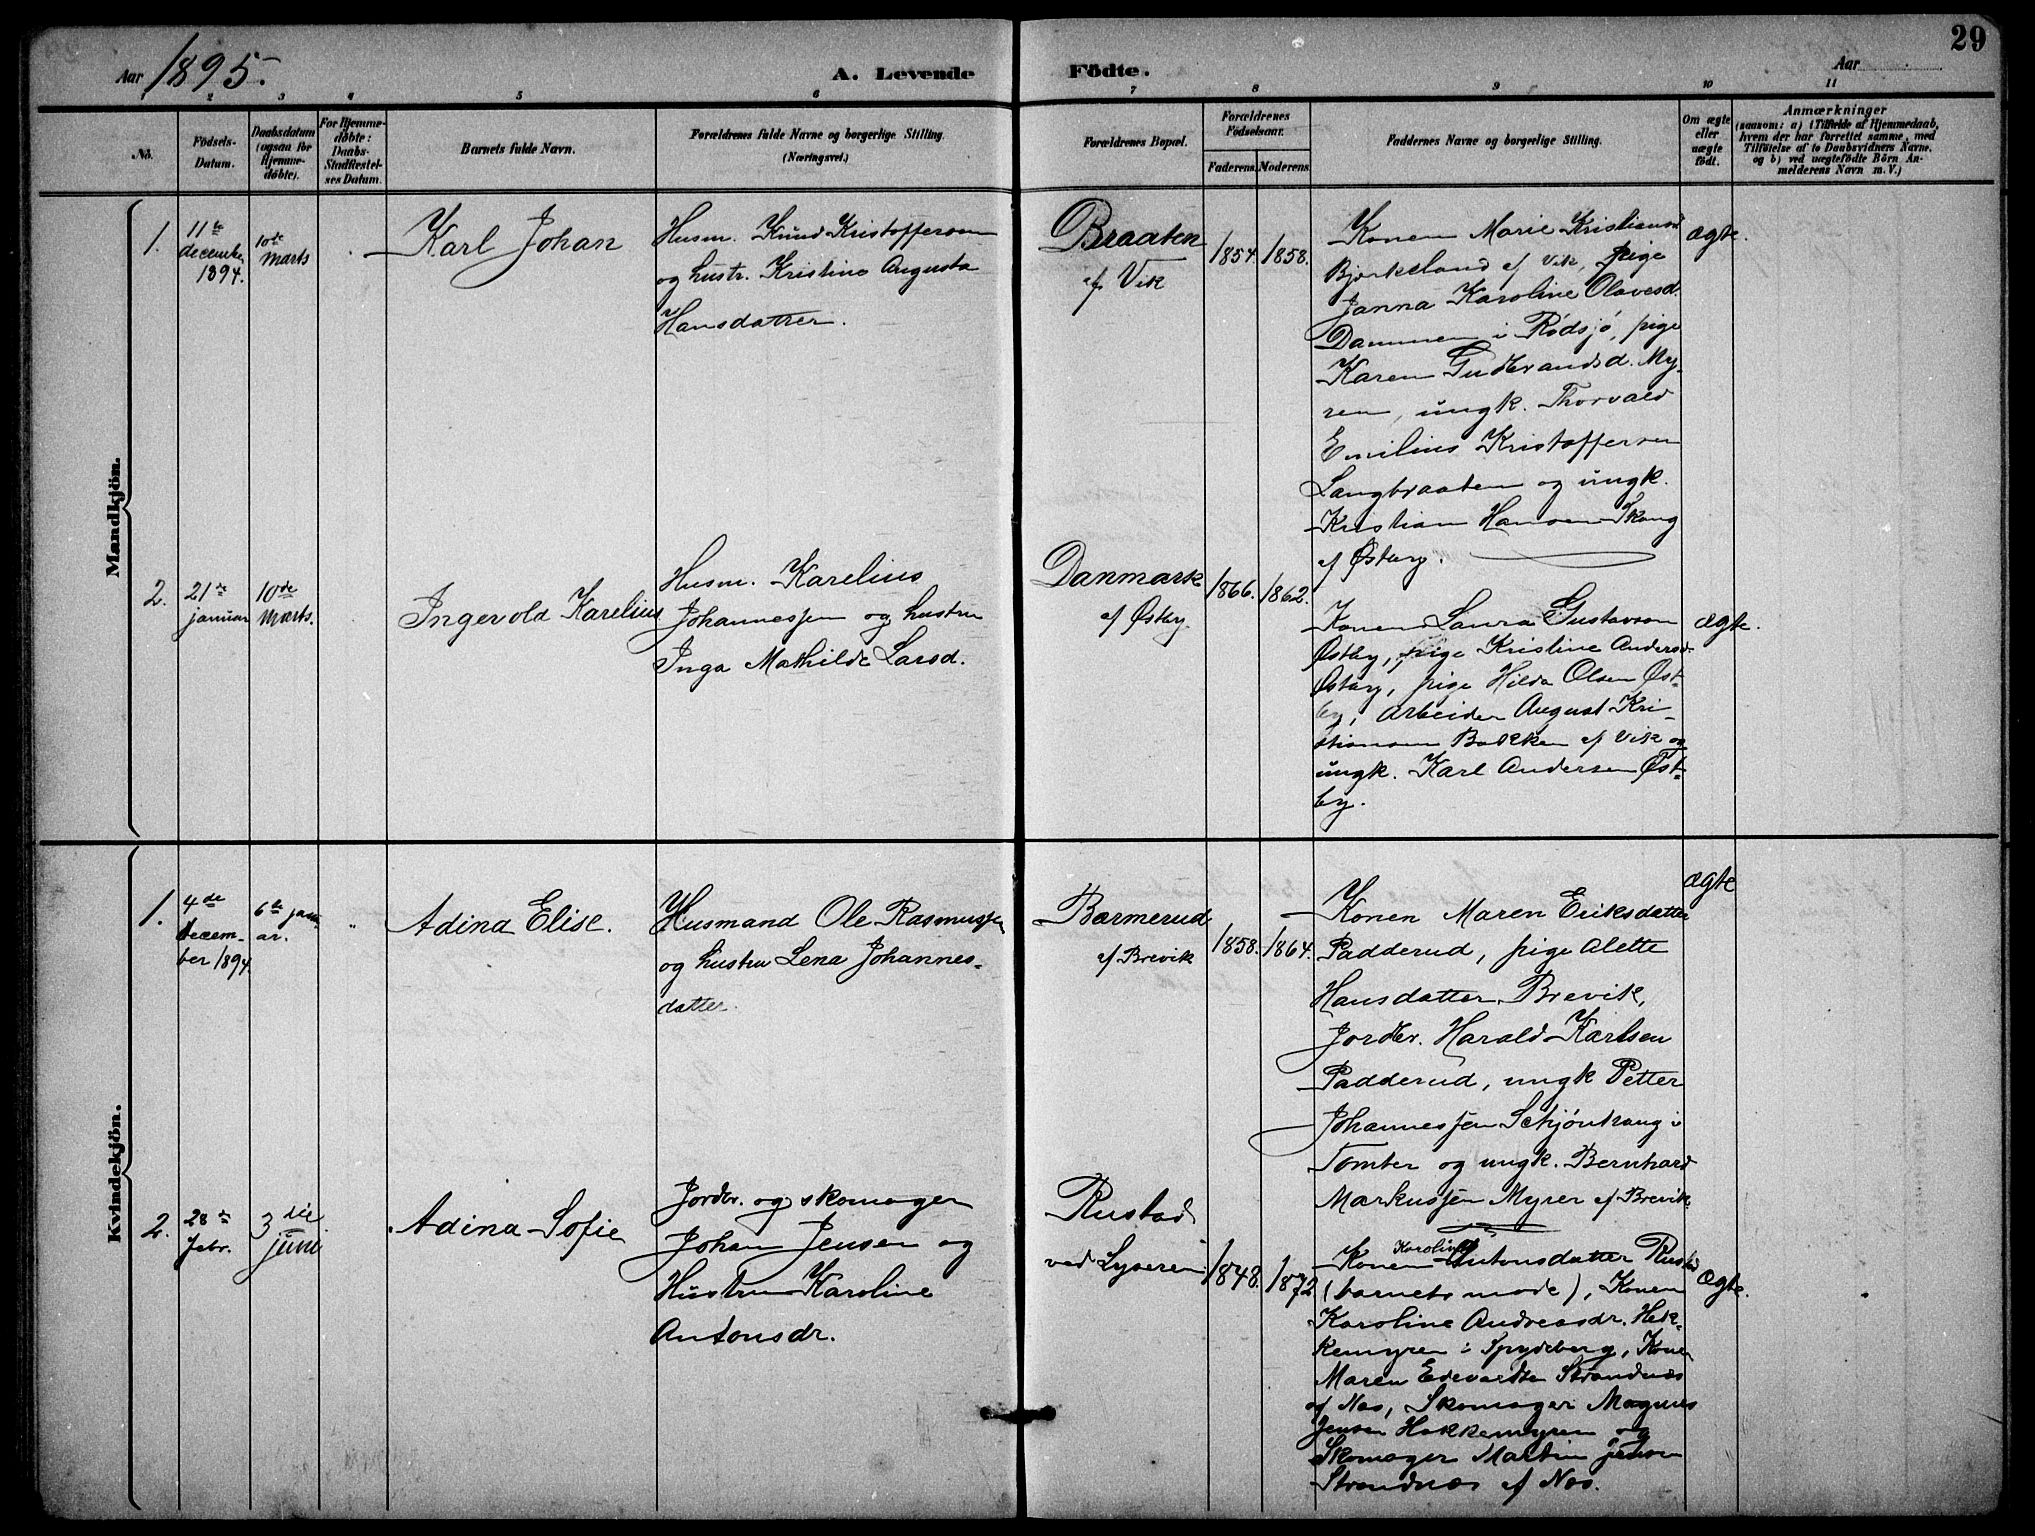 29
Aar 1895.
A. Levende
Fødte.
Aar
1 2 3 4 5 6 7 8 9 10 11
No.
Födsels-
Datum.
Daabsdatum
(ogsaa for
Hjemme-
døbte).
For Hjemme-
døbte:
Daabs-
Stadfæstel-
ses Datum.
Barnets fulde Navn.
Forældrenes fulde Navne og borgerlige Stilling.
(Næringsvei.)
Forældrenes Bopæl.
Forældrenes
Födselsaar.
Faderens. Moderens.
Faddernes Navne og borgerlige Stilling.
Om ægte
eller
uægte
født.
Anmærkninger
(saasom: a) i Tilfælde af Hjemmedaab,
hvem der har forrettet samme, med
Tilföielse af to Daabsvidners Navne.
og b) ved uægtefödte Börn An-
melderens Navn m. V.)
Mandkjön.
1.
11te
december
1894.
10de
Marts
Karl Johan
Husm. Knud Kristoffersen
og hustr. Kristine Augusta
Hansdatter.
Braaten
af Vik
1854. 1858.
Konen Marie Kristiansd
Bjerkeland af Vik, pige
Janna Karoline Olavesd.
Dammen i Rødsjø, pige
Karen Gudbrandsd. My-
ren, ungk. Thorvald
Emilius Kristoffersen
Langbraaten og ungk.
Kristian Hansen Skoug
af Østby.
ægte.
2.
21de
januar
10de
Marts.
Ingevold Karelius
Husm. Karelius
Johannessen og hustru
Inga Mathilde Larsd.
Danmark
af Østby.
1866. 1862.
Konen Laura Gustavson
Østby, pige Kristine Andersd.
Østby, pige Hilda Olsen Øst-
by, Arbeider August Kri-
stiansen Bakken af Vik og
ungk. Karl Andersen Øst-
by.
ægte.
Kvindekjön.
1.
4de
decem-
ber 1894
6te janu
ar.
"
Adina Elise.
Husmand Ole Rasmussen
og hustru Lena Johannes-
datter.
Barmerud
af Brevik
1858. 1864.
Konen Maren Eriksdatter
Padderud, pige Alette
Hansdatter Brevik,
Jordbr. Harald Karlsen
Padderud, ungk Petter
Johannessen Schjönhaug i
Tomter og ungk. Bernhard
Markussen Myrer af Brevik.
ægte
2.
28de
febr.
3die
juni
Adina Sofie
Jordbr. og skomager
Johan Jensen og
Hustru Karoline
Antonsdr.
Rustad
ved Lyseren
1848. 1872
Konen Karoline Antonsdatter Rustad
(barnets mode), Konen
Karoline Andreasdr. Hak-
kemyren i Spydeberg, Konen
Maren Edevardsen Strandnæs
af Næs, Skomager Magnus
Jensen Hakkemyren og
Skomager Martin Jensen
Strandnæs af Næs.
ægte.